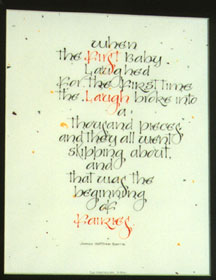 when
the First Baby
Laughed
for the First time
the Laugh broke into
a
thousand pieces
and they all went
skipping about,
and
that was the
beginning
of
Fairies